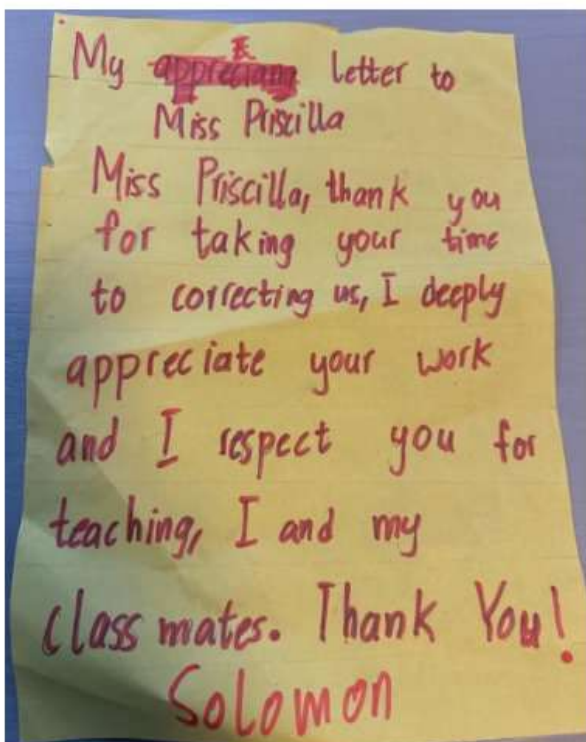 My letter to
Miss Priscilla
Miss Priscilla, thank you
for taking your time
to correcting us, I deeply
appreciate your work
and I respect you for
teaching, I and my
class mates. Thank You!
Solomon